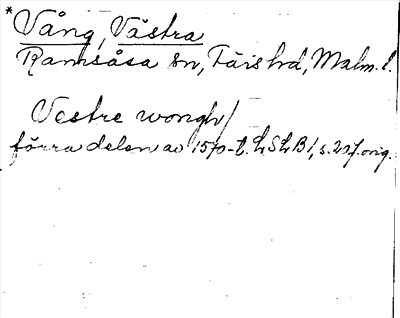 *Vång, Västra
Ramsåsa sn, Färs hd, Malm. l.
Vestre wongh/
förra delen av 1570-t. LSLB 1, s. 207. orig.